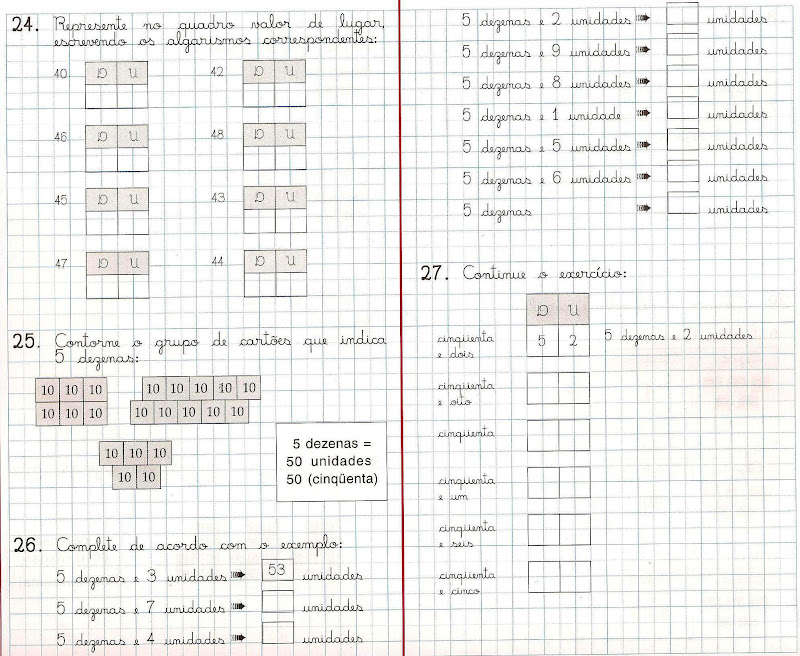 24. Represente no quadro valor de lugar,
escrevendo os algarismos correspondentes:
40 D U 42 D U
46 D U 48 D U
45 D U 43 D U
47 D U 44 D U
25. Contorne o grupo de cartões que indica
5 dezenas:
10 10 10
10 10 10
10 10 10 10 10
10 10 10 10 10
10 10 10
10 10
5 dezenas =
50 unidades
50 (cinqüenta)
26. Complete de acordo com o exemplo:
5 dezenas e 3 unidades ➠ 53 unidades
5 dezenas e 7 unidades ➠ unidades
5 dezenas e 4 unidades ➠ unidades
5 dezenas e 2 unidades ➠ unidades
5 dezenas e 9 unidades ➠ unidades
5 dezenas e 8 unidades ➠ unidades
5 dezenas e 1 unidade ➠ unidades
5 dezenas e 5 unidades ➠ unidades
5 dezenas e 6 unidades ➠ unidades
5 dezenas ➠ unidades
27. Continue o exercício:
D U
cinqüenta
e dois 5 2 5 dezenas e 2 unidades
cinqüenta
e oito
cinqüenta
cinqüenta
e um
cinqüenta
e seis
cinqüenta
e cinco